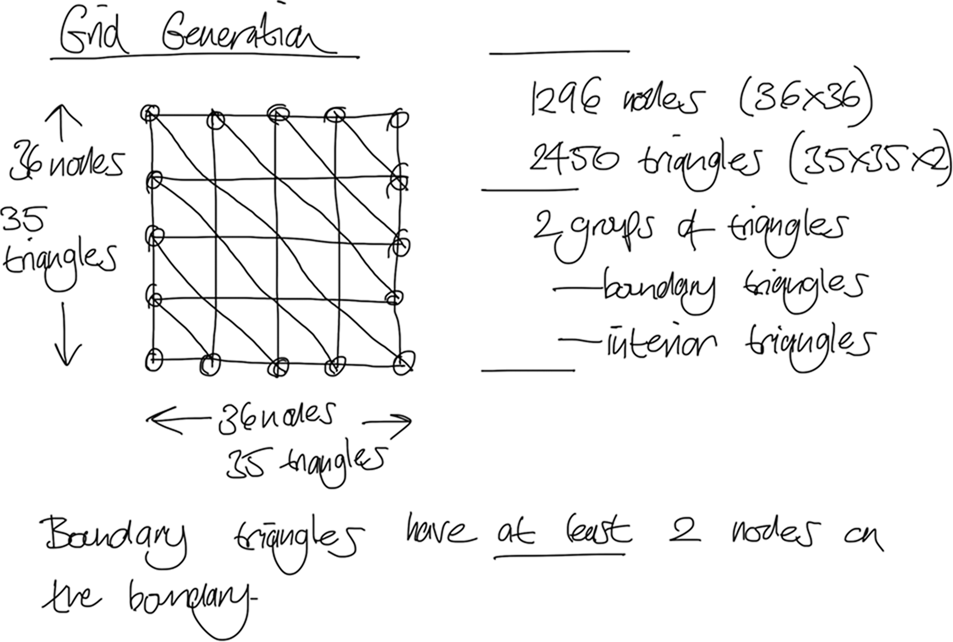 Grid Generation
36 nodes
35
triangles
36 nodes
35 triangles
1296 nodes (36×36)
2450 triangles (35×35×2)
2 groups of triangles
— boundary triangles
— interior triangles
Boundary triangles have at least 2 nodes on
the boundary.